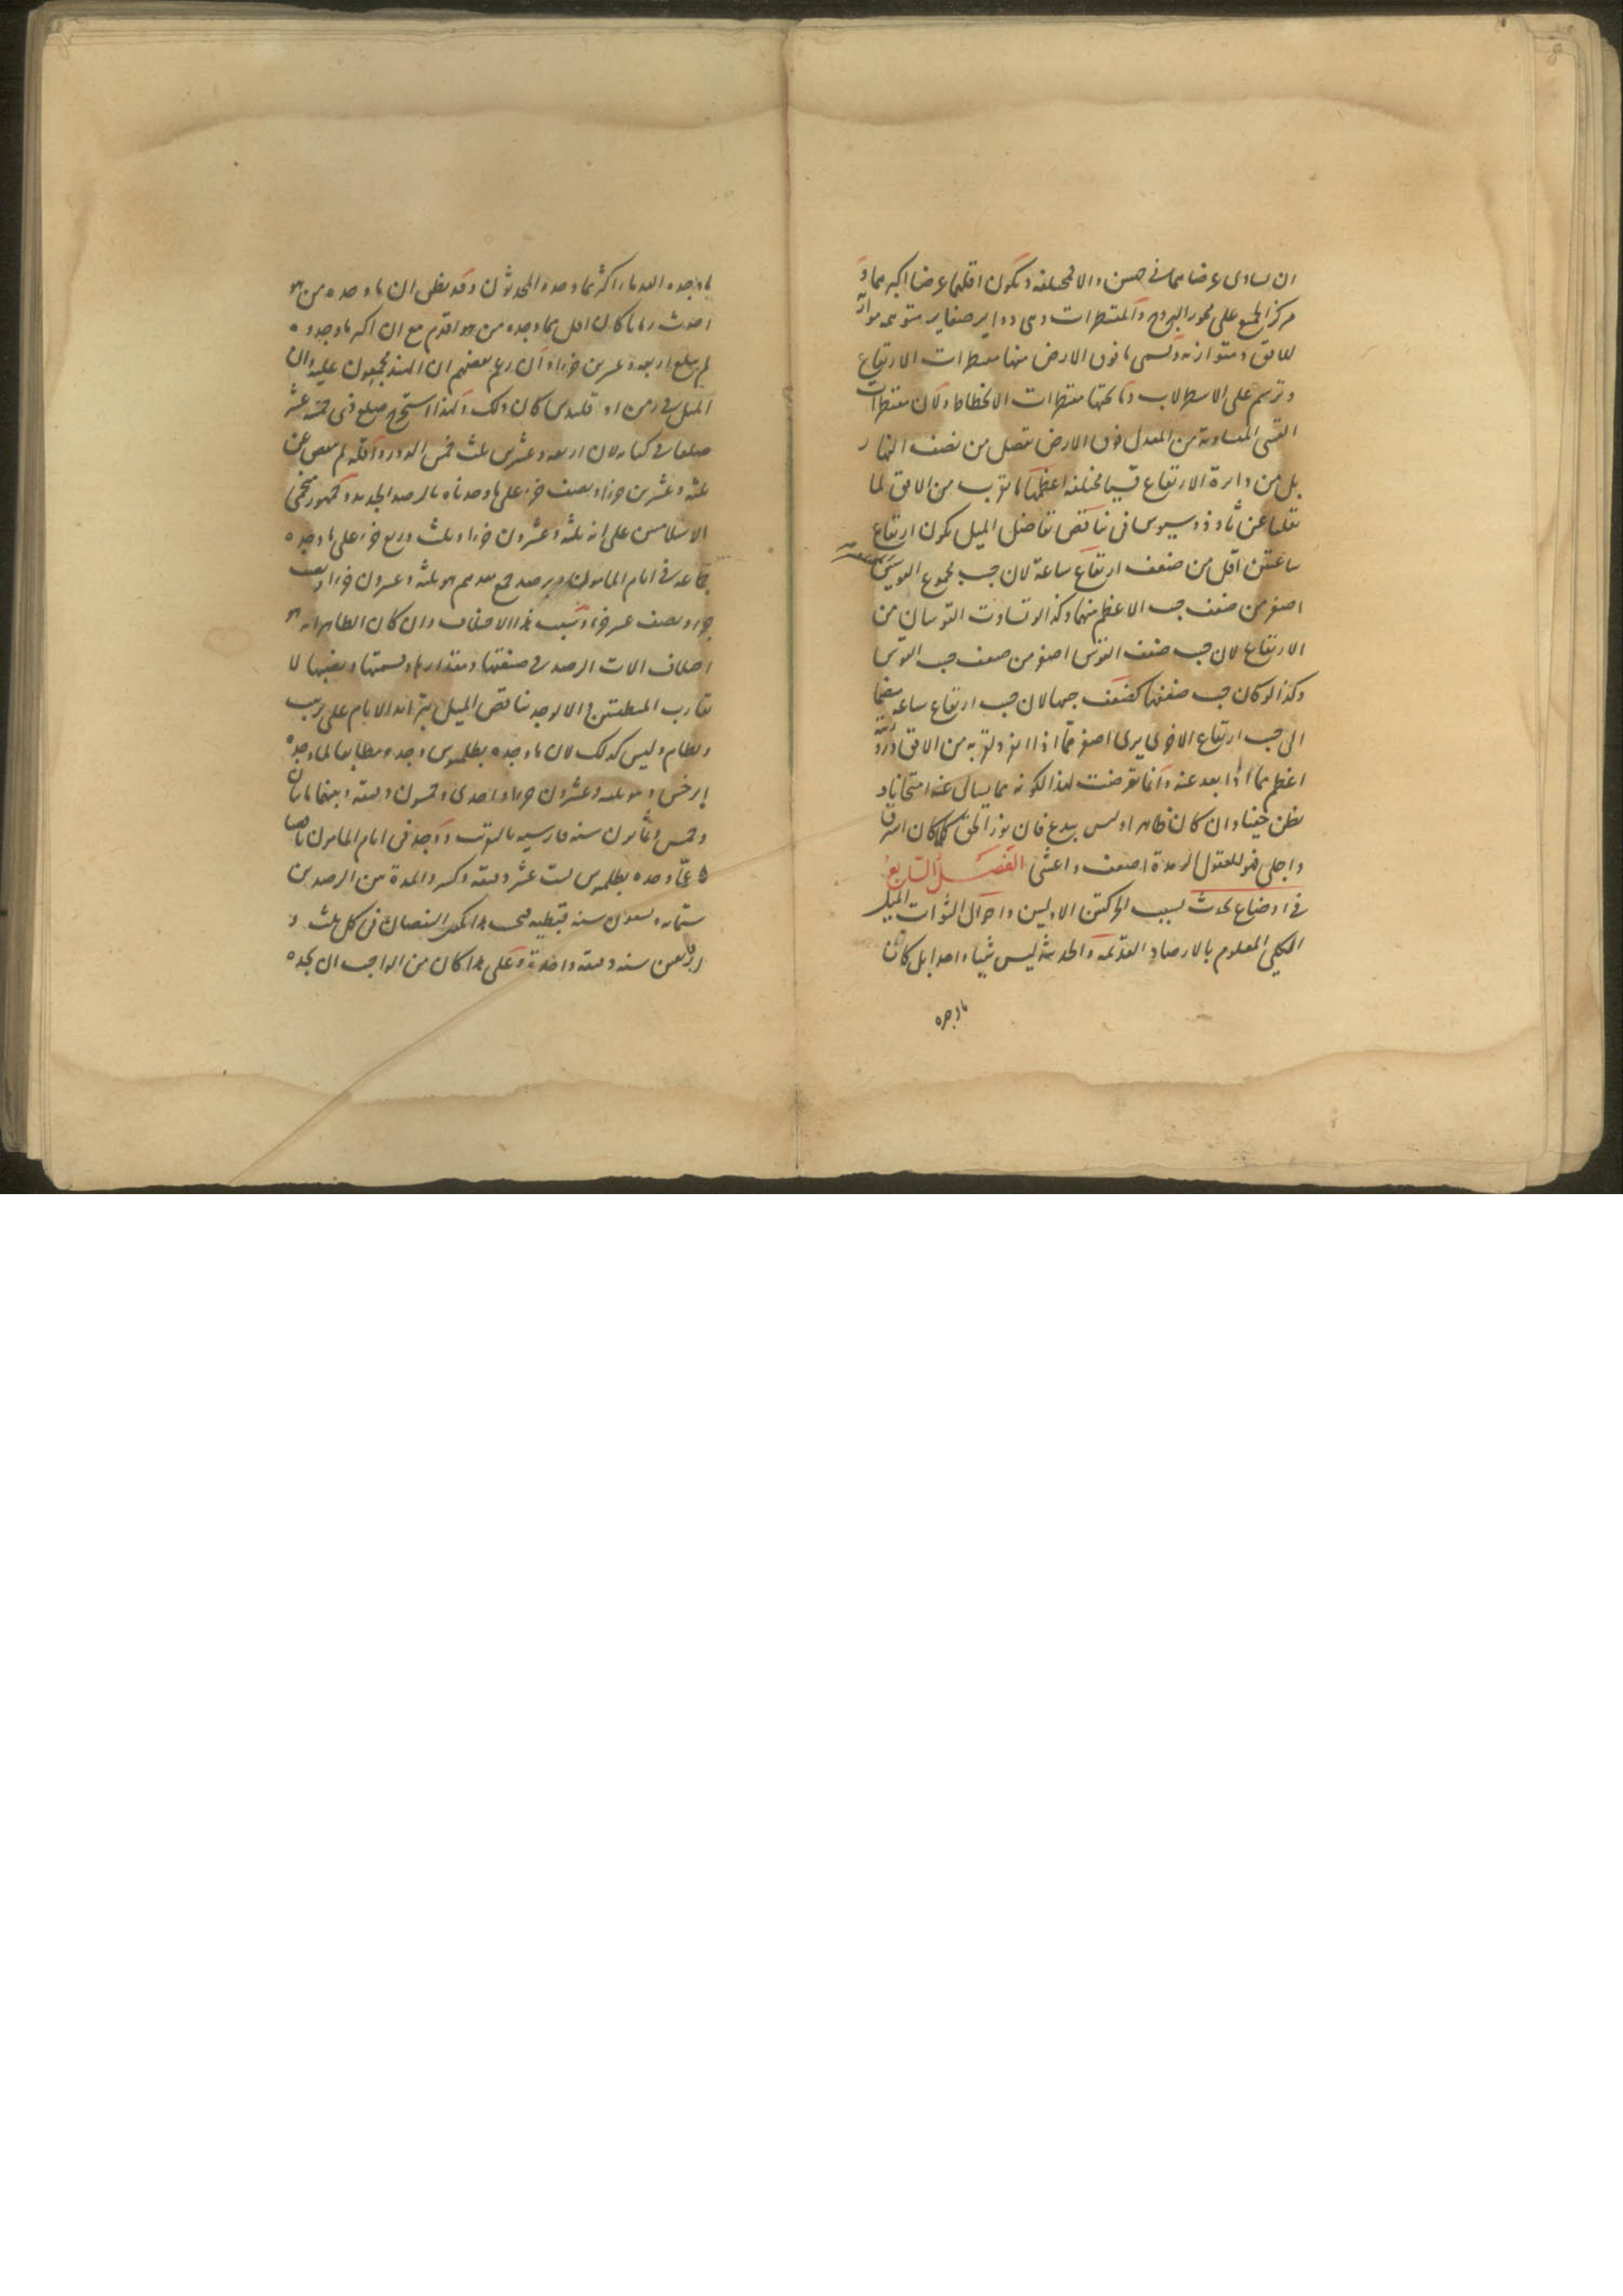 ان يساوى عرضاهما فى جهتين والا فمختلفة ويكون اقلهما عرضا اكبرهما و
مركز الجمع على محور البروج والمقنطرات وهى دواير صغاير متوهمة موازية
للافق ومتوازية وتسمى ما فوق الارض منها مقنطرات الارتفاع
وترسم على الاسطرلاب وما تحتها مقنطرات الانحطاط ولان مقنطرات
القسى المتساوية من المعدل فوق الارض تفصل من نصف النهار
بل من دايرة الارتفاع قسيا مختلفة اعظمها ما تقرب من الافق لما
نقلنا عن ثاوذوسيوس فى تناقص تفاضل الميل يكون ارتفاع
ساعتين اقل من ضعف ارتفاع ساعة لان جيب مجموع القوسين
اصغر من ضعف جيب الاعظم منهما وكذا لو تساوت القوسان من
الارتفاع لان جيب ضعف القوس اصغر من ضعف جيب القوس
وكذا لو كان جيب ضعفها كضعف جيبها لان جيب ارتفاع ساعة
الى جيب ارتفاع الاخرى يرى اصغر مما اذا لقربه من الافق
اعظم مما اذا بعد عنه وانما تعرضت لهذا لكونه مما يسال عنه امتحانا و
يظن خفيا وان كان ظاهرا وليس ببدع فان نور الحق كلما كان اشرق
واجلى فهو للعقول الرمدة اضعف واعشى الفصل السابع
فى اوضاع تحدث بسبب الحركتين الاوليين واحوال الثوابت الميل
الكلى المعلوم بالارصاد القديمة والحديثة ليس شيئا واحدا بل كان
ما وجده
ما وجده القدماء اكثر مما وجده المحدثون وقد يظن ان ما وجده من هو
احدث زمانا كان اقل مما وجده من هو اقدم مع ان اكثر ما وجدوه
لم يبلغ اربعة وعشرين جزءا وان زعم بعضهم ان الهند مجمعون عليه وان
الميل فى زمن اوقليدس كان ذلك ولهذا استخرج ضلع ذى خمسة عشر
ضلعا فى كتابه لان اربعة وعشرين ثلث خمس الدور واقله لم ينقص عن
ثلثة وعشرين جزءا ونصف جزء على ما وجدناه بالرصد الجديد وجمهور منجمى
الاسلاميين على انه ثلثة وعشرون جزءا وثلث وربع جزء على ما وجده
جماعة فى ايام المامون وبرصد هو ثلثة وعشرون جزءا ونصف
جزء ونصف عشر جزء وسبب هذا الاختلاف وان كان الظاهر انه هو
اختلاف الات الرصد فى صنعتها ومقدارها وقسمتها ونصبها لا
تقارب المنطقتين والا لوجد تناقص الميل بتزايد الايام على ترتيب
ونظام وليس كذلك لان ما وجده بطلميوس وجده مطابقا لما وجده
ابرخس وهو ثلثة وعشرون جزءا واحدى وخمسون دقيقة وبينهما مايتان
وخمس وثمانون سنة فارسية بالتقريب ووجد فى ايام المامون ناقصا
عما وجده بطلميوس ست عشر دقيقة وكسر والمدة بين الرصدين
ستماية وتسعون سنة قبطية فبحسب هذا يكون النقصان فى كل ثلث و
اربعين سنة دقيقة واحدة وعلى هذا كان من الواجب ان يجده